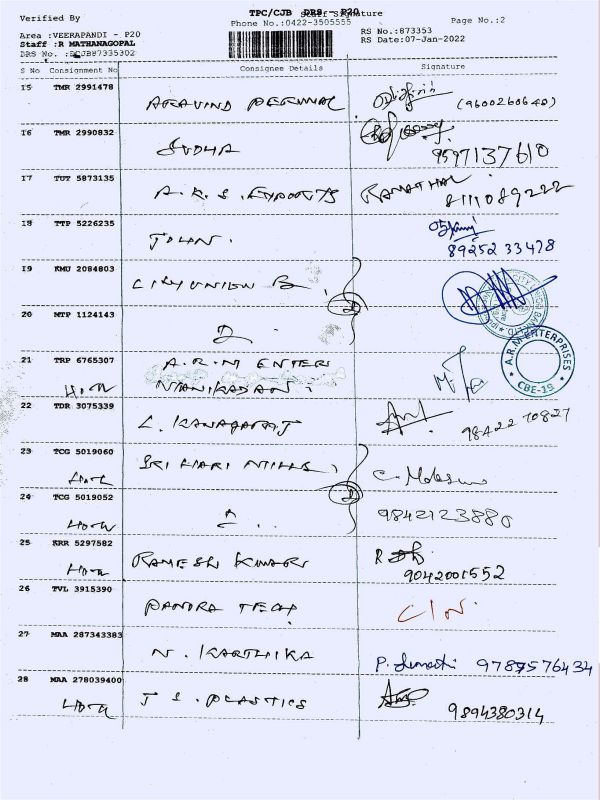 TPC/CJB DRS - P20
Verified By
Phone No.:0422-3505555
Page No.:2
Area :VEERAPANDI - P20
RS No.:873353
Staff :R MATHANAGOPAL
RS Date:07-Jan-2022
DRS No. :
S No Consignment No Consignee Details Signature
15 TMR 2991478 ARAVIND PERUMAL (9600260640)
16 TMR 2990832 SUDHA 9597137610
17 TGT 5873135 A.R.S. EXPORTS RAMATHAL 8111089222
18 TTP 5226235 JOHN. 89252 33478
19 KMU 2084803 CITY UNION B.
20 MTP 1124143
21 TRP 6765307 A.R.M ENTER
MANIKADAN.
A.R.M ENTERPRISES
CBE-19
22 TDR 3075339 L. KANAGARAJ 98422 70827
23 TCG 5019060 SRI HARI MILLS
24 TCG 5019052 9842123880
25 KRR 5297582 RAMESH KUMAR R
9042001552
26 TVL 3915390 PANDRA TECH
27 MAA 287343383 N. KARTHIKA P. 9787576434
28 MAA 278039400 J S. PLASTICS 9894380314